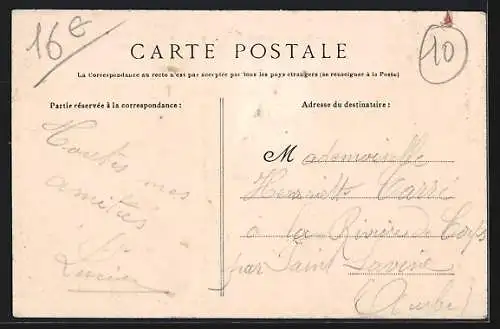 16€
10
CARTE POSTALE
La Correspondance au recto n'est pas acceptée par tous les pays étrangers (se renseigner à la Poste)
Partie réservée à la correspondance :
Adresse du destinataire :
Toutes mes
amitiés
Lucien
Mademoiselle
Henriette Carré
à la Rivière de Corps
par Saint Savine
(Aube)